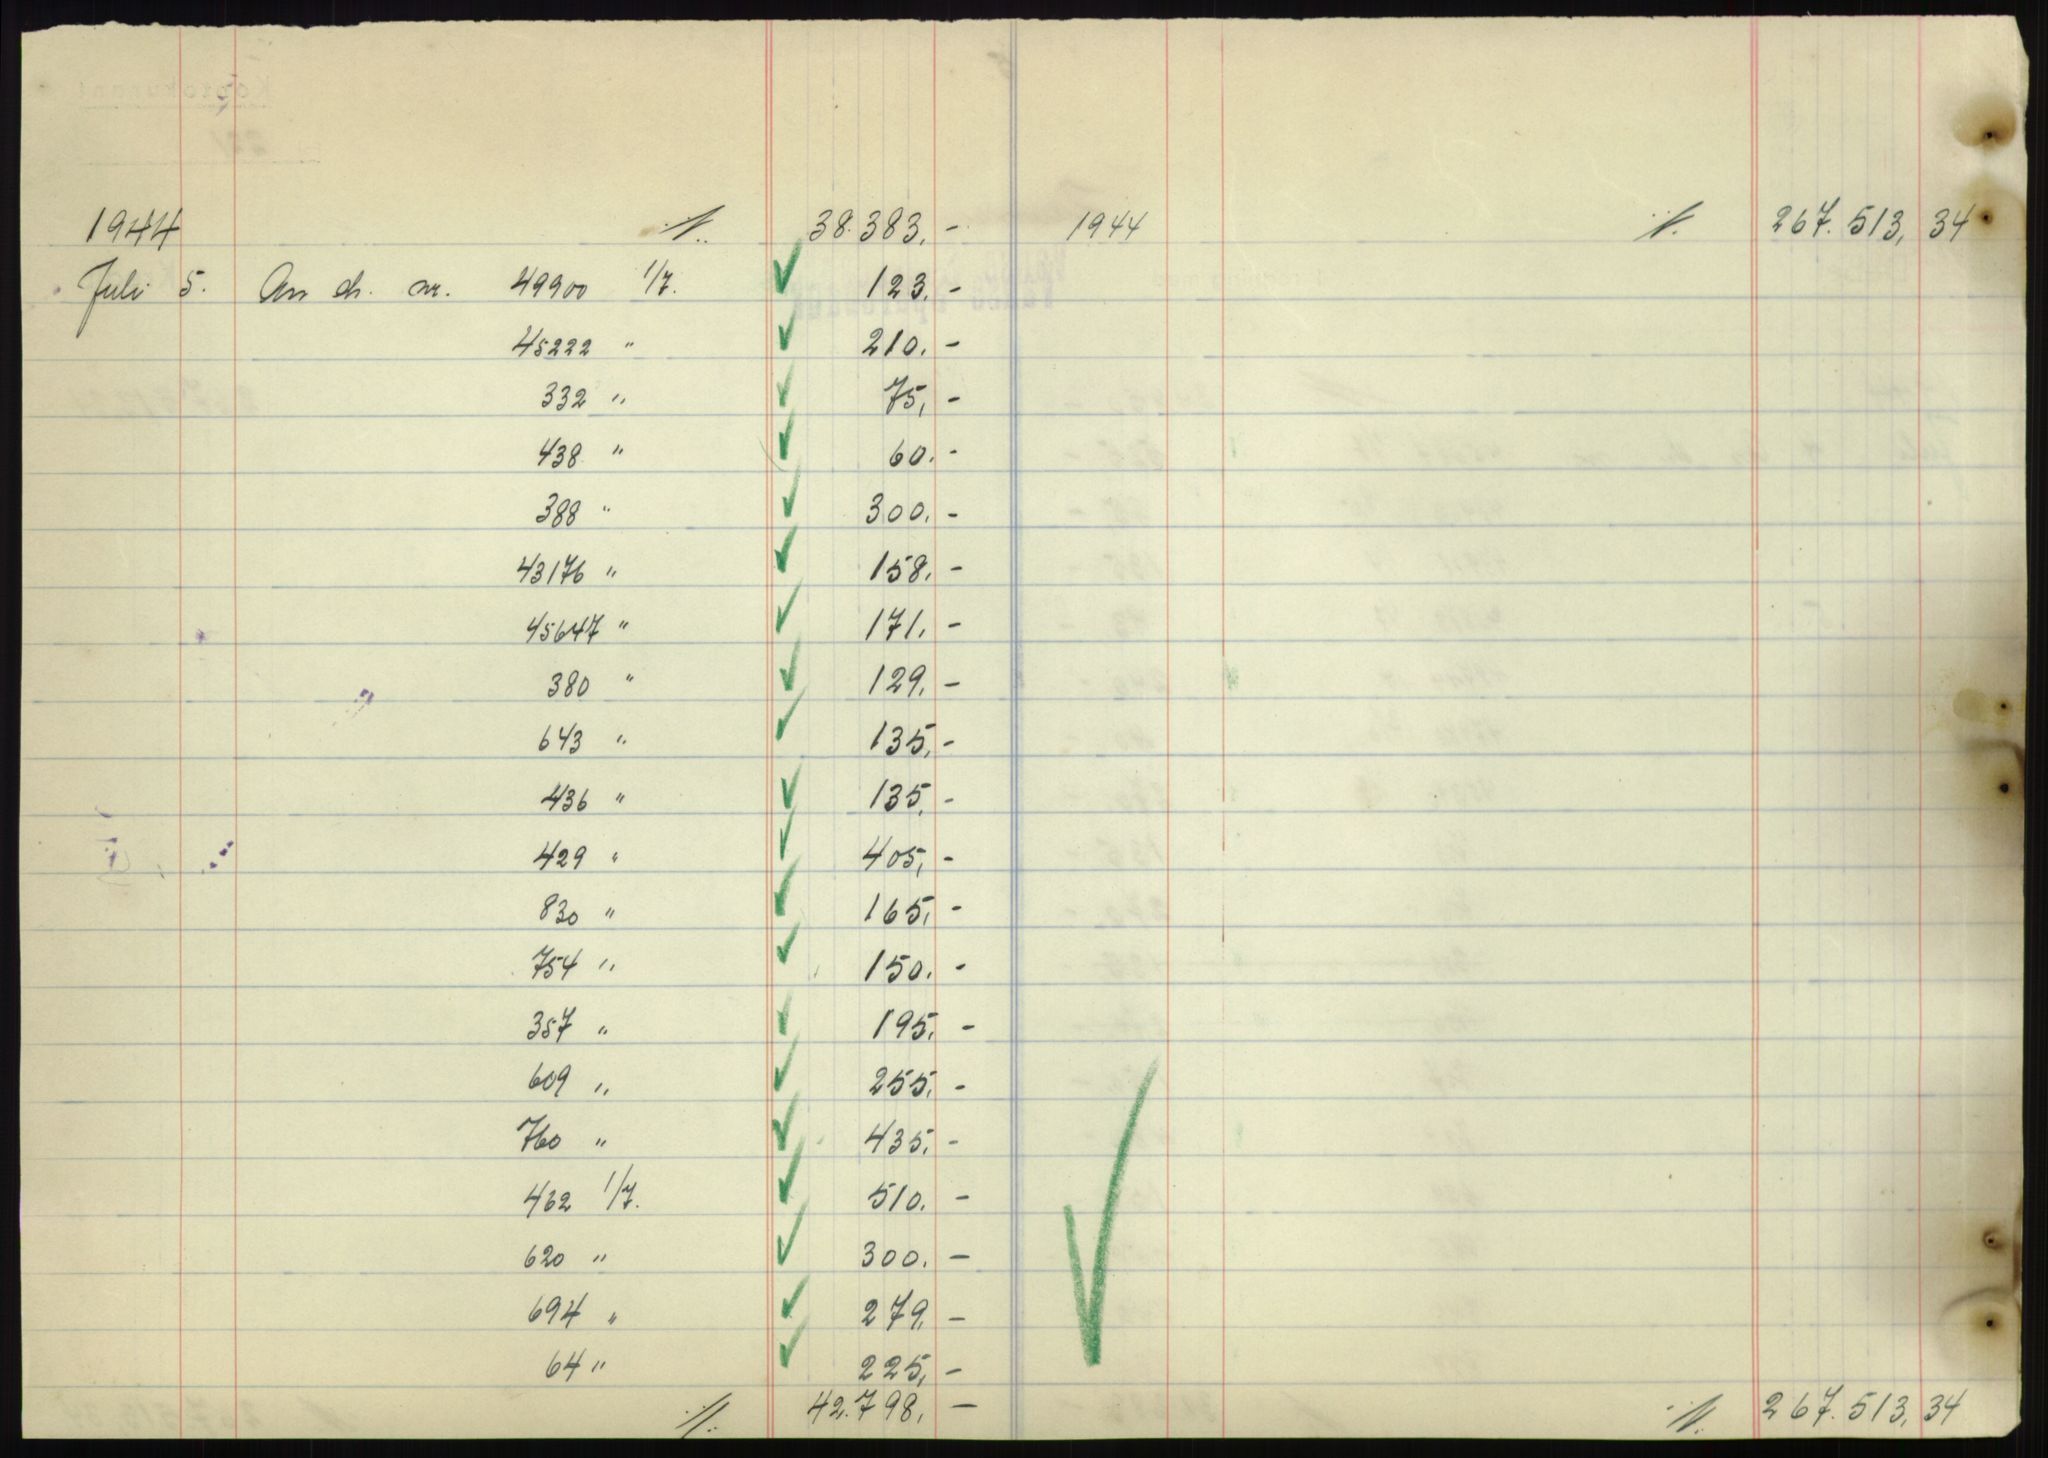 1944 38.383,- 1944 267.513,34
Juli 5. An ch. nr. 49900 1/7. 123,-
45222 " 210.-
332 " 75,-
438 " 60.-
388 " 300.-
43176 " 158.-
45647 " 171.-
380 " 129.-
643 " 135,-
436 " 135,-
429 " 405,-
830 " 165,-
754 " 150.-
357 " 195,-
609 " 255,-
760 " 435,-
462 1/7. 510.-
620 " 300.-
694 " 279,-
64 " 225,-
42.798,- 267.513,34